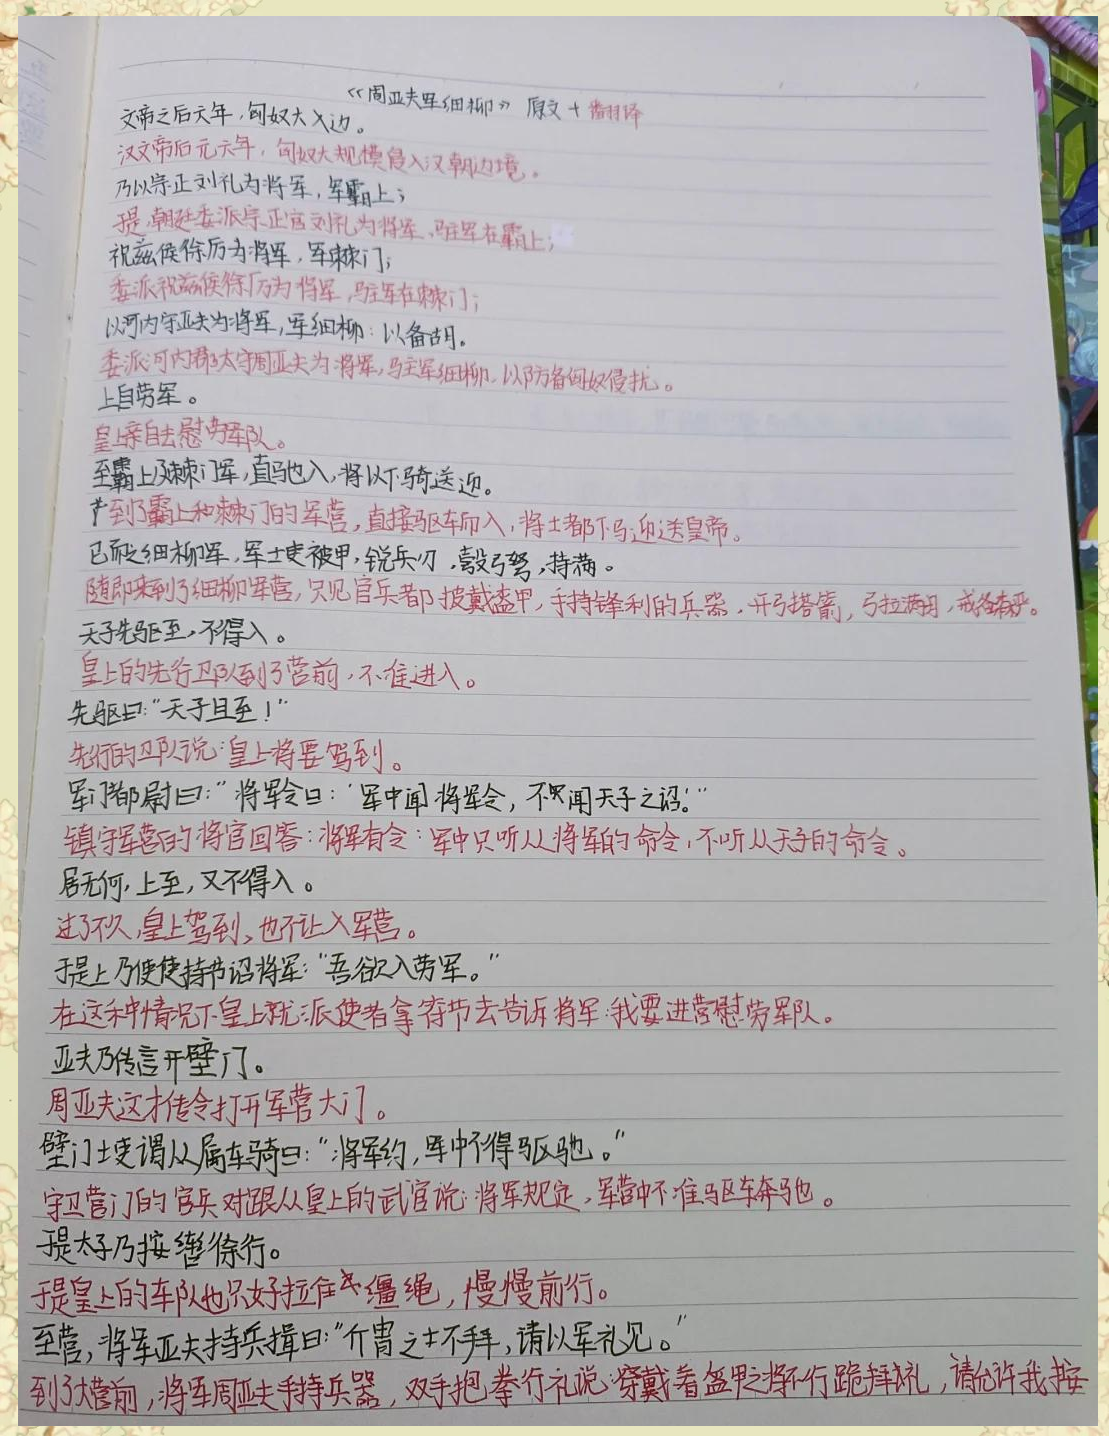 《周亚夫军细柳》 原文 + 翻译
文帝之后六年，匈奴大入边。
汉文帝后元六年，匈奴大规模侵入汉朝边境。
乃以宗正刘礼为将军，军霸上；
于是，朝廷委派宗正官刘礼为将军，驻军在霸上；
祝兹侯徐厉为将军，军棘门；
委派祝兹侯徐厉为将军，驻军在棘门；
以河内守亚夫为将军，军细柳：以备胡。
委派河内郡太守周亚夫为将军，驻军细柳，以防备匈奴侵扰。
上自劳军。
皇上亲自去慰劳军队。
至霸上及棘门军，直驰入，将以下骑送迎。
到了霸上和棘门的军营，直接驱车而入，将士都下马迎送皇帝。
已而之细柳军，军士吏被甲，锐兵刃，彀弓弩，持满。
随即来到了细柳军营，只见官兵都披戴盔甲，手持锋利的兵器，开弓搭箭，弓拉满月，戒备森严。
天子先驱至，不得入。
皇上的先行卫队到了营前，不准进入。
先驱曰：“天子且至！”
先行的卫队说：皇上将要驾到。
军门都尉曰：“将军令曰：‘军中闻将军令，不闻天子之诏。’”
镇守军营的将官回答：将军有令：军中只听从将军的命令，不听从天子的命令。
居无何，上至，又不得入。
过了不久，皇上驾到，也不让入军营。
于是上乃使使持节诏将军：“吾欲入劳军。”
在这种情况下皇上就派使者拿符节去告诉将军：我要进营慰劳军队。
亚夫乃传言开壁门。
周亚夫这才传令打开军营大门。
壁门士吏谓从属车骑曰：“将军约，军中不得驱驰。”
守卫营门的官兵对跟从皇上的武官说：将军规定，军营中不准驱车奔驰。
于是太子乃按辔徐行。
于是皇上的车队也只好拉住缰绳，慢慢前行。
至营，将军亚夫持兵揖曰：“介胄之士不拜，请以军礼见。”
到了大营前，将军周亚夫手持兵器，双手抱拳行礼说：穿戴着盔甲之将不行跪拜礼，请允许我按